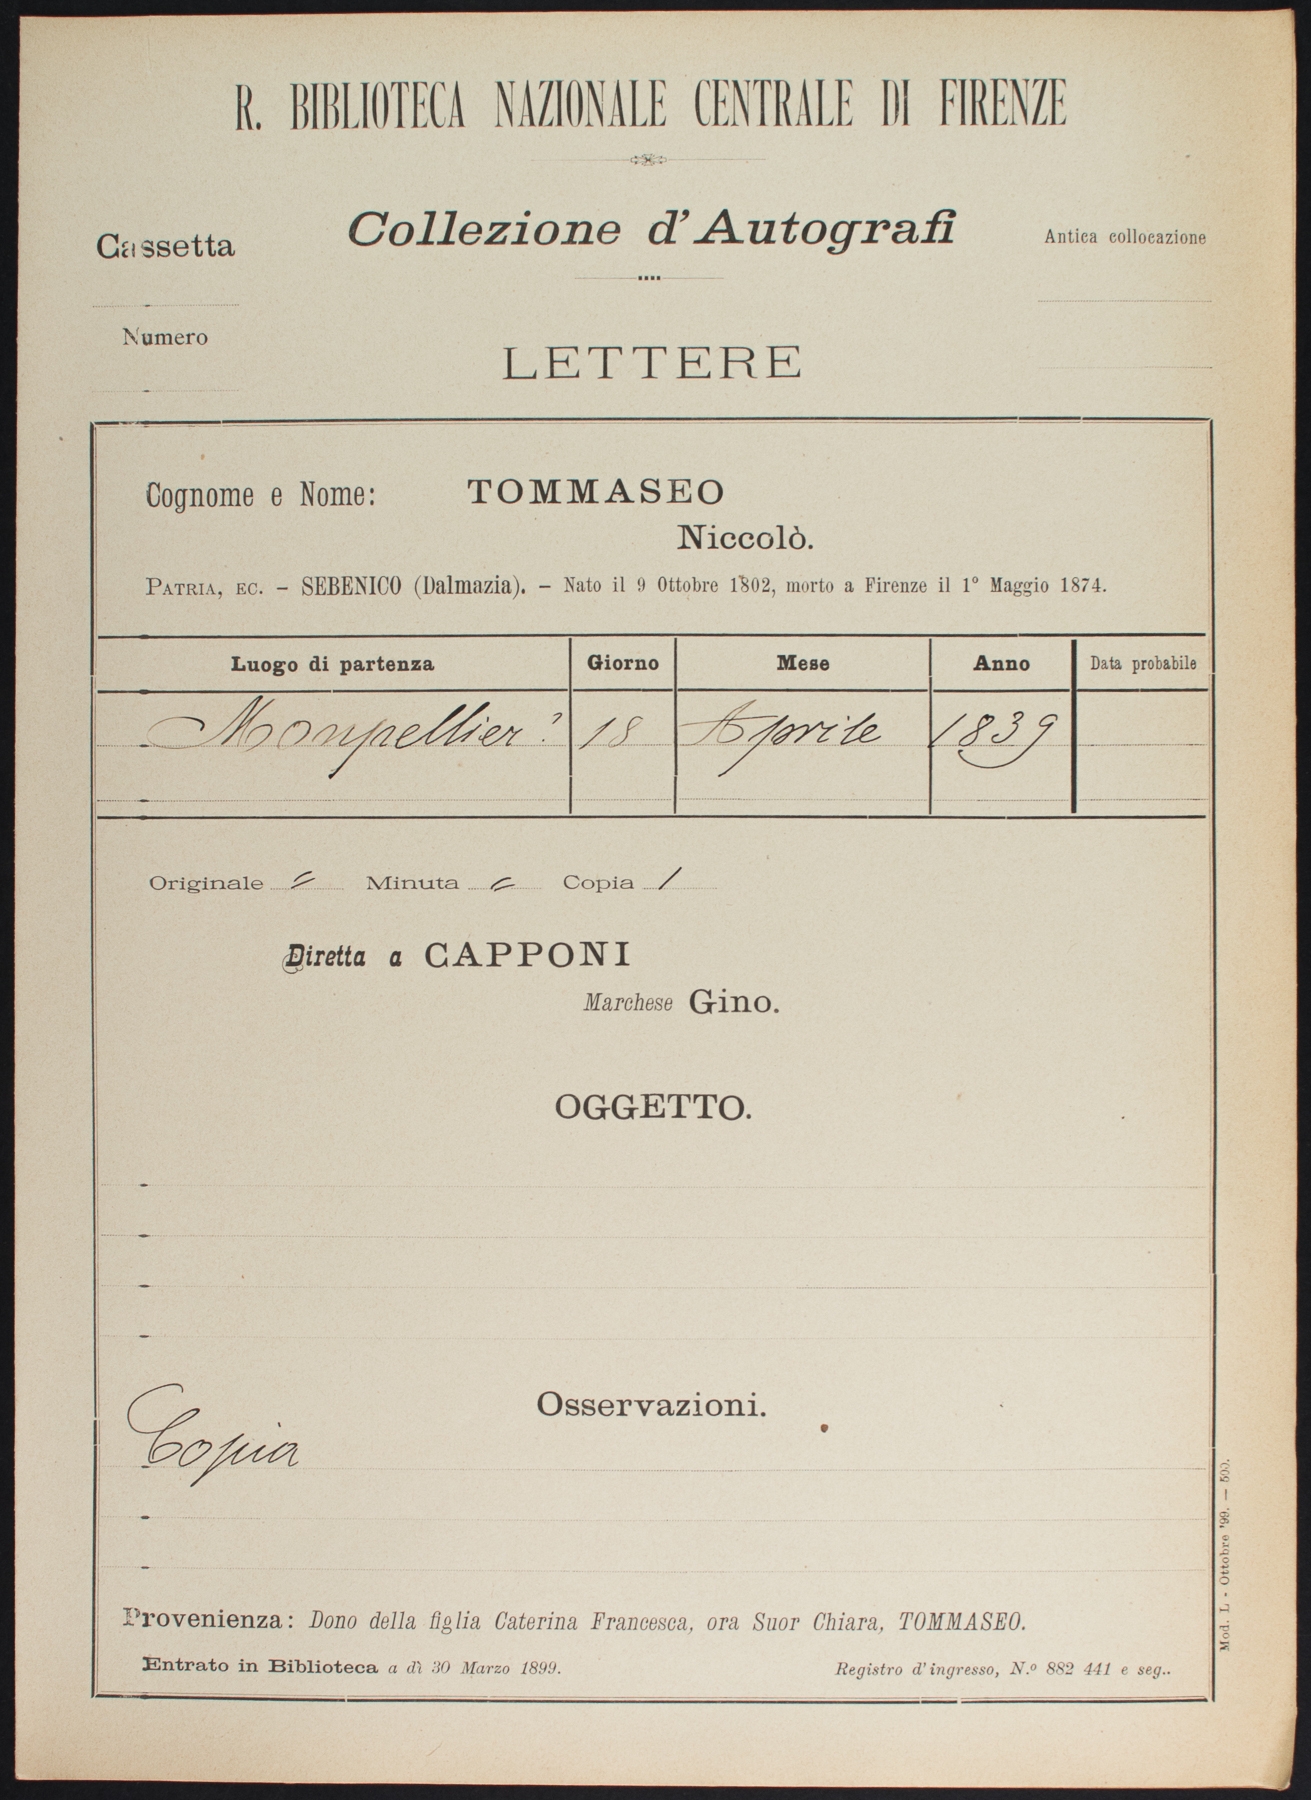 R. BIBLIOTECA NAZIONALE CENTRALE DI FIRENZE
Cassetta
Collezione d'Autografi
Antica collocazione
Numero
LETTERE
Cognome e Nome: TOMMASEO
Niccolò.
PATRIA, EC. – SEBENICO (Dalmazia). – Nato il 9 Ottobre 1802, morto a Firenze il 1º Maggio 1874.
Luogo di partenza Giorno Mese Anno Data probabile
Monpellier? 18 Aprile 1839
Originale = Minuta = Copia /
Diretta a CAPPONI
Marchese Gino.
OGGETTO.
Osservazioni.
Copia
Provenienza: Dono della figlia Caterina Francesca, ora Suor Chiara, TOMMASEO.
Entrato in Biblioteca a dì 30 Marzo 1899. Registro d'ingresso, N.º 882 441 e seg..
Mod. L - Ottobre '99. — 500.